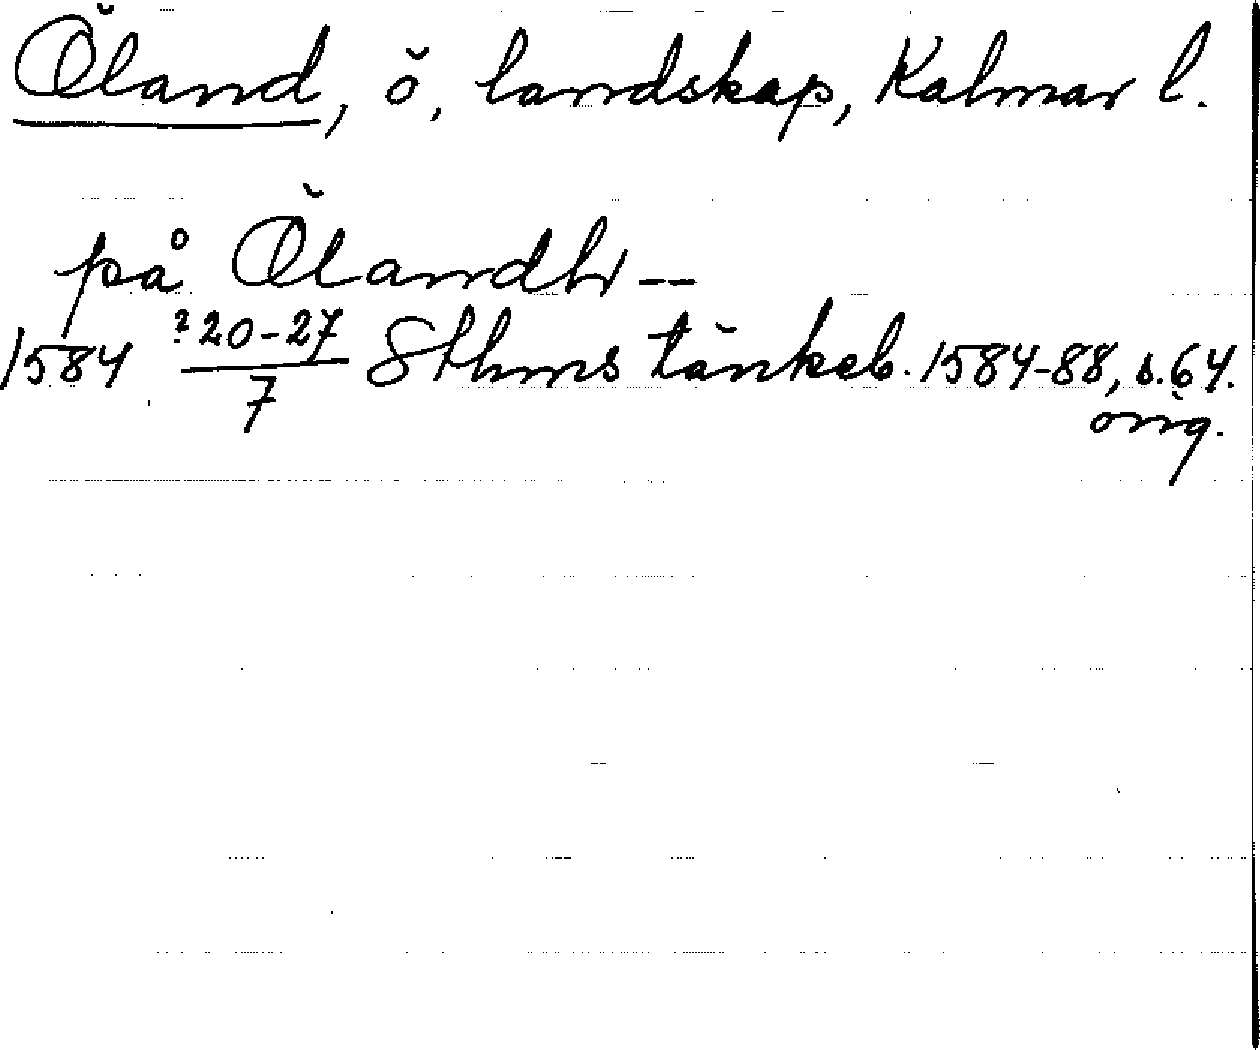 Öland, ö, landskap, Kalmar l.
på Ölandh --
1584 ?20-27/7 Sthms tänkeb. 1584-88, s.64.
orig.